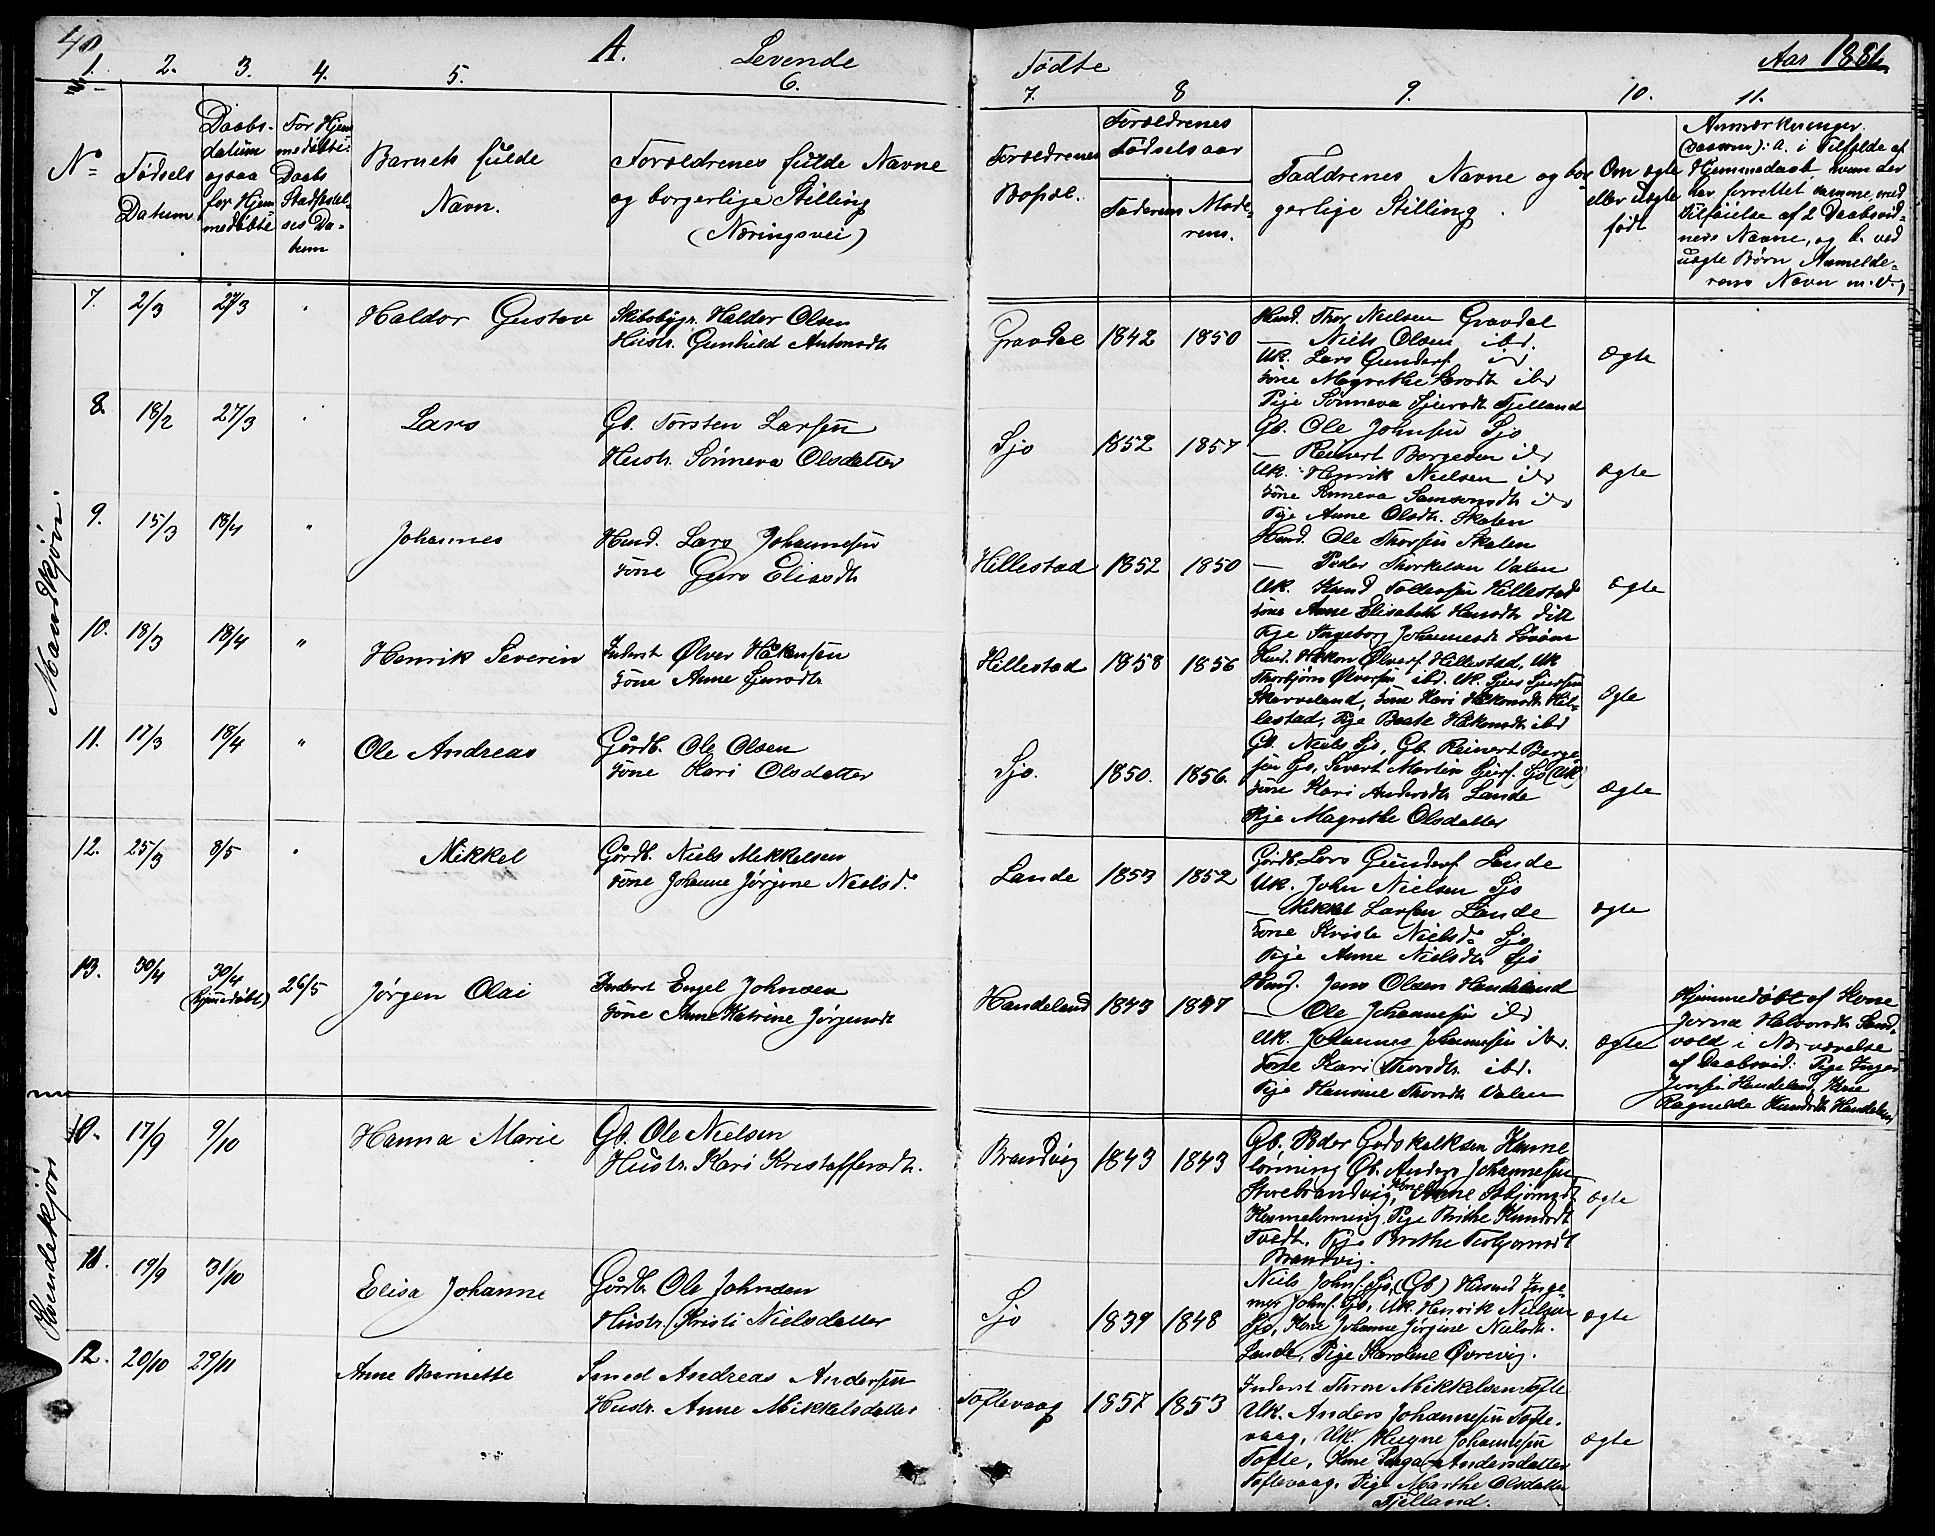 40
A.
Levende
Fødte
Aar 1881.
1.
2.
3.
4.
5.
6.
7.
8
9.
10.
11.
No
Fødsels
Datum
Daabs-
datum
ogsaa
for Hjem
medøbte
For Hjem
medøbte:
Daabs
Stadfæstel-
ses Da-
tum
Barnets fulde
Navn.
Forældrenes fulde Navne
og borgerlige Stilling
(Næringsvei)
Forældrenes
Bopæl.
Forældrenes
Fødselsaar
Faderens
Mode-
rens.
Faddrenes Navne og bor
gerlige Stilling.
Om ægte
eller uægte
født
Anmærkninger.
(saasom): a. i Tilfælde af
Hjemmedaab, hvem der
har forrettet samme, med
Tilføielse af 2 Daabsvid-
ners Navne, og b. ved
uægte Børn Anmelde-
rens Navn m.v.
Mandkjøn.
7.
2/3
27/3
Haldor Gustav
Skibsbygr. Haldor Olsen
Hustr. Gunhild Antonsdtr
Gravdal
1842
1850
Husd. Thor Nielsen Gravdal
— Niels Olsen ibd.
Uk. Lars Gunders. ibd
Kone Magrethe Larsdtr ibd
Pige Sønneva Sjursdtr Fjelland
Ægte
8.
18/2
27/3
Lars
Gb. Torsten Larsen
Hustr. Sønneva Olsdatter
Sjo
1852
1857
Gb. Ole Johnsen Sjo
— Reinert Borgesen ibd
Uk. Henrik Nielsen ibd
Kone Sønneva Samsonsdtr ibd
Pige Anne Olsdtr. Skalen
Ægte
9.
15/3
18/4
"
Johannes
Husd. Lars Johannesen
Kone Guro Eliasdtr
Hillestad
1852
1850
Husd. Ole Thorsen Skalen
— Peder Thorkelsen Valen
Uk. Knud Tollevsen Hillestad
Kone Anne Elisabeth Hansdtr ditt
Pige Ingeborg Johannesdtr
Ægte
10.
18/3
18/4
"
Henrik Severin
Inderst Ølver Håkonsen
Kone Anne Sjursdtr
Hillestad
1858
1856
Husd. Håkon Ølvers. Hillestad, Uk
Thorbjørn Ølversen ibd. Uk. Sjur Sjursen
Skarveland, Kone Kari Håkonsdtr Hil-
lestad, Pige Beate Håkonsdtr ibd
Ægte
11.
17/3
18/4
"
Ole Andreas
Gårdb. Ole Olsen
Kone Kari Olsdatter
Sjo.
1850.
1856.
Gb. Niels Sjo, Gb. Reinert Børge-
sen Sjo, Severt Martin Sjurs. Sjo (Uk)
Kone Kari Andersdtr Lande
Pige Magrethe Olsdatter
Ægte
12.
25/3
8/5
"
Mikkel
Gårdb. Niels Mikkelsen
Kone Johanne Jørgine Nielsd.
Lande
1853
1852
Gårdb. Lars Gunders. Lande
Uk. John Nielsen Sjo
— Mikkel Larsen Lande
Kone Kristi Nielsdr Sjo
Pige Anne Nielsdtr Sjo
Ægte
13.
30/4
30/4
(hjemedøbt)
26/5
Jørgen Olai
Inderst Engel Johnsen
Kone Anne Katrine Jørgensdtr
Handeland
1843
1847
Husd. Jens Olsen Handeland
— Ole Johannesen ibd
Uk. Johannes Johannesen ibd.
Kone Kari Thorsdtr ibd.
Pige Hansine Thorsdtr Valen
Ægte
Hjemmedøbt af Kone
Halvorsdtr Sand-
vold i Nærværelse
af Daabsvid: Pige Inger
Handeland, Kone
Ragnilde Knudsdtr Handeland
Kvindekjøn
10.
17/9
9/10
Hanna Marie
Gb. Ole Nielsen
Hustr. Kari Kristoffersdtr.
Brandvig
1843
1843
Gb. Peder Godskalksen Henne
lønning Gb. Anders Johannesen
Storebrandvig, Kone Anne Asbjørnsdt.
Hennelønning. Pige Brithe Knudsdt
Tvedt, Pige Brithe Torbjørnsdt
Brandvig.
Ægte
11.
19/9
31/10
Elisa Johanne
Gårdb. Ole Johnsen
Hustr. Kristi Nielsdatter
Sjo
1839
1848
Niels Johns. Sjo, (Gb) Husmd Inge
mer Johns. Sjo, Uk. Henrik Nielsen
Sjo, Kone Johanne Jørgine Nielsdtr.
Lande, Pige Karoline Øvrevig.
Ægte
12.
20/10
29/11
Anne Bernette
Smed Andreas Andersen
Hustr. Anne Mikkelsdatter
Toftevaag
1857
1853
Inderst Thron Mikkelsen Tofte
Uk. Anders Johannesen Tofte-
vaag, Uk. Mugne Johannesen
Tofte, Kone Andersdatter
Toftevaag. Pige Marthe Olsdatter
Fjelland.
Ægte